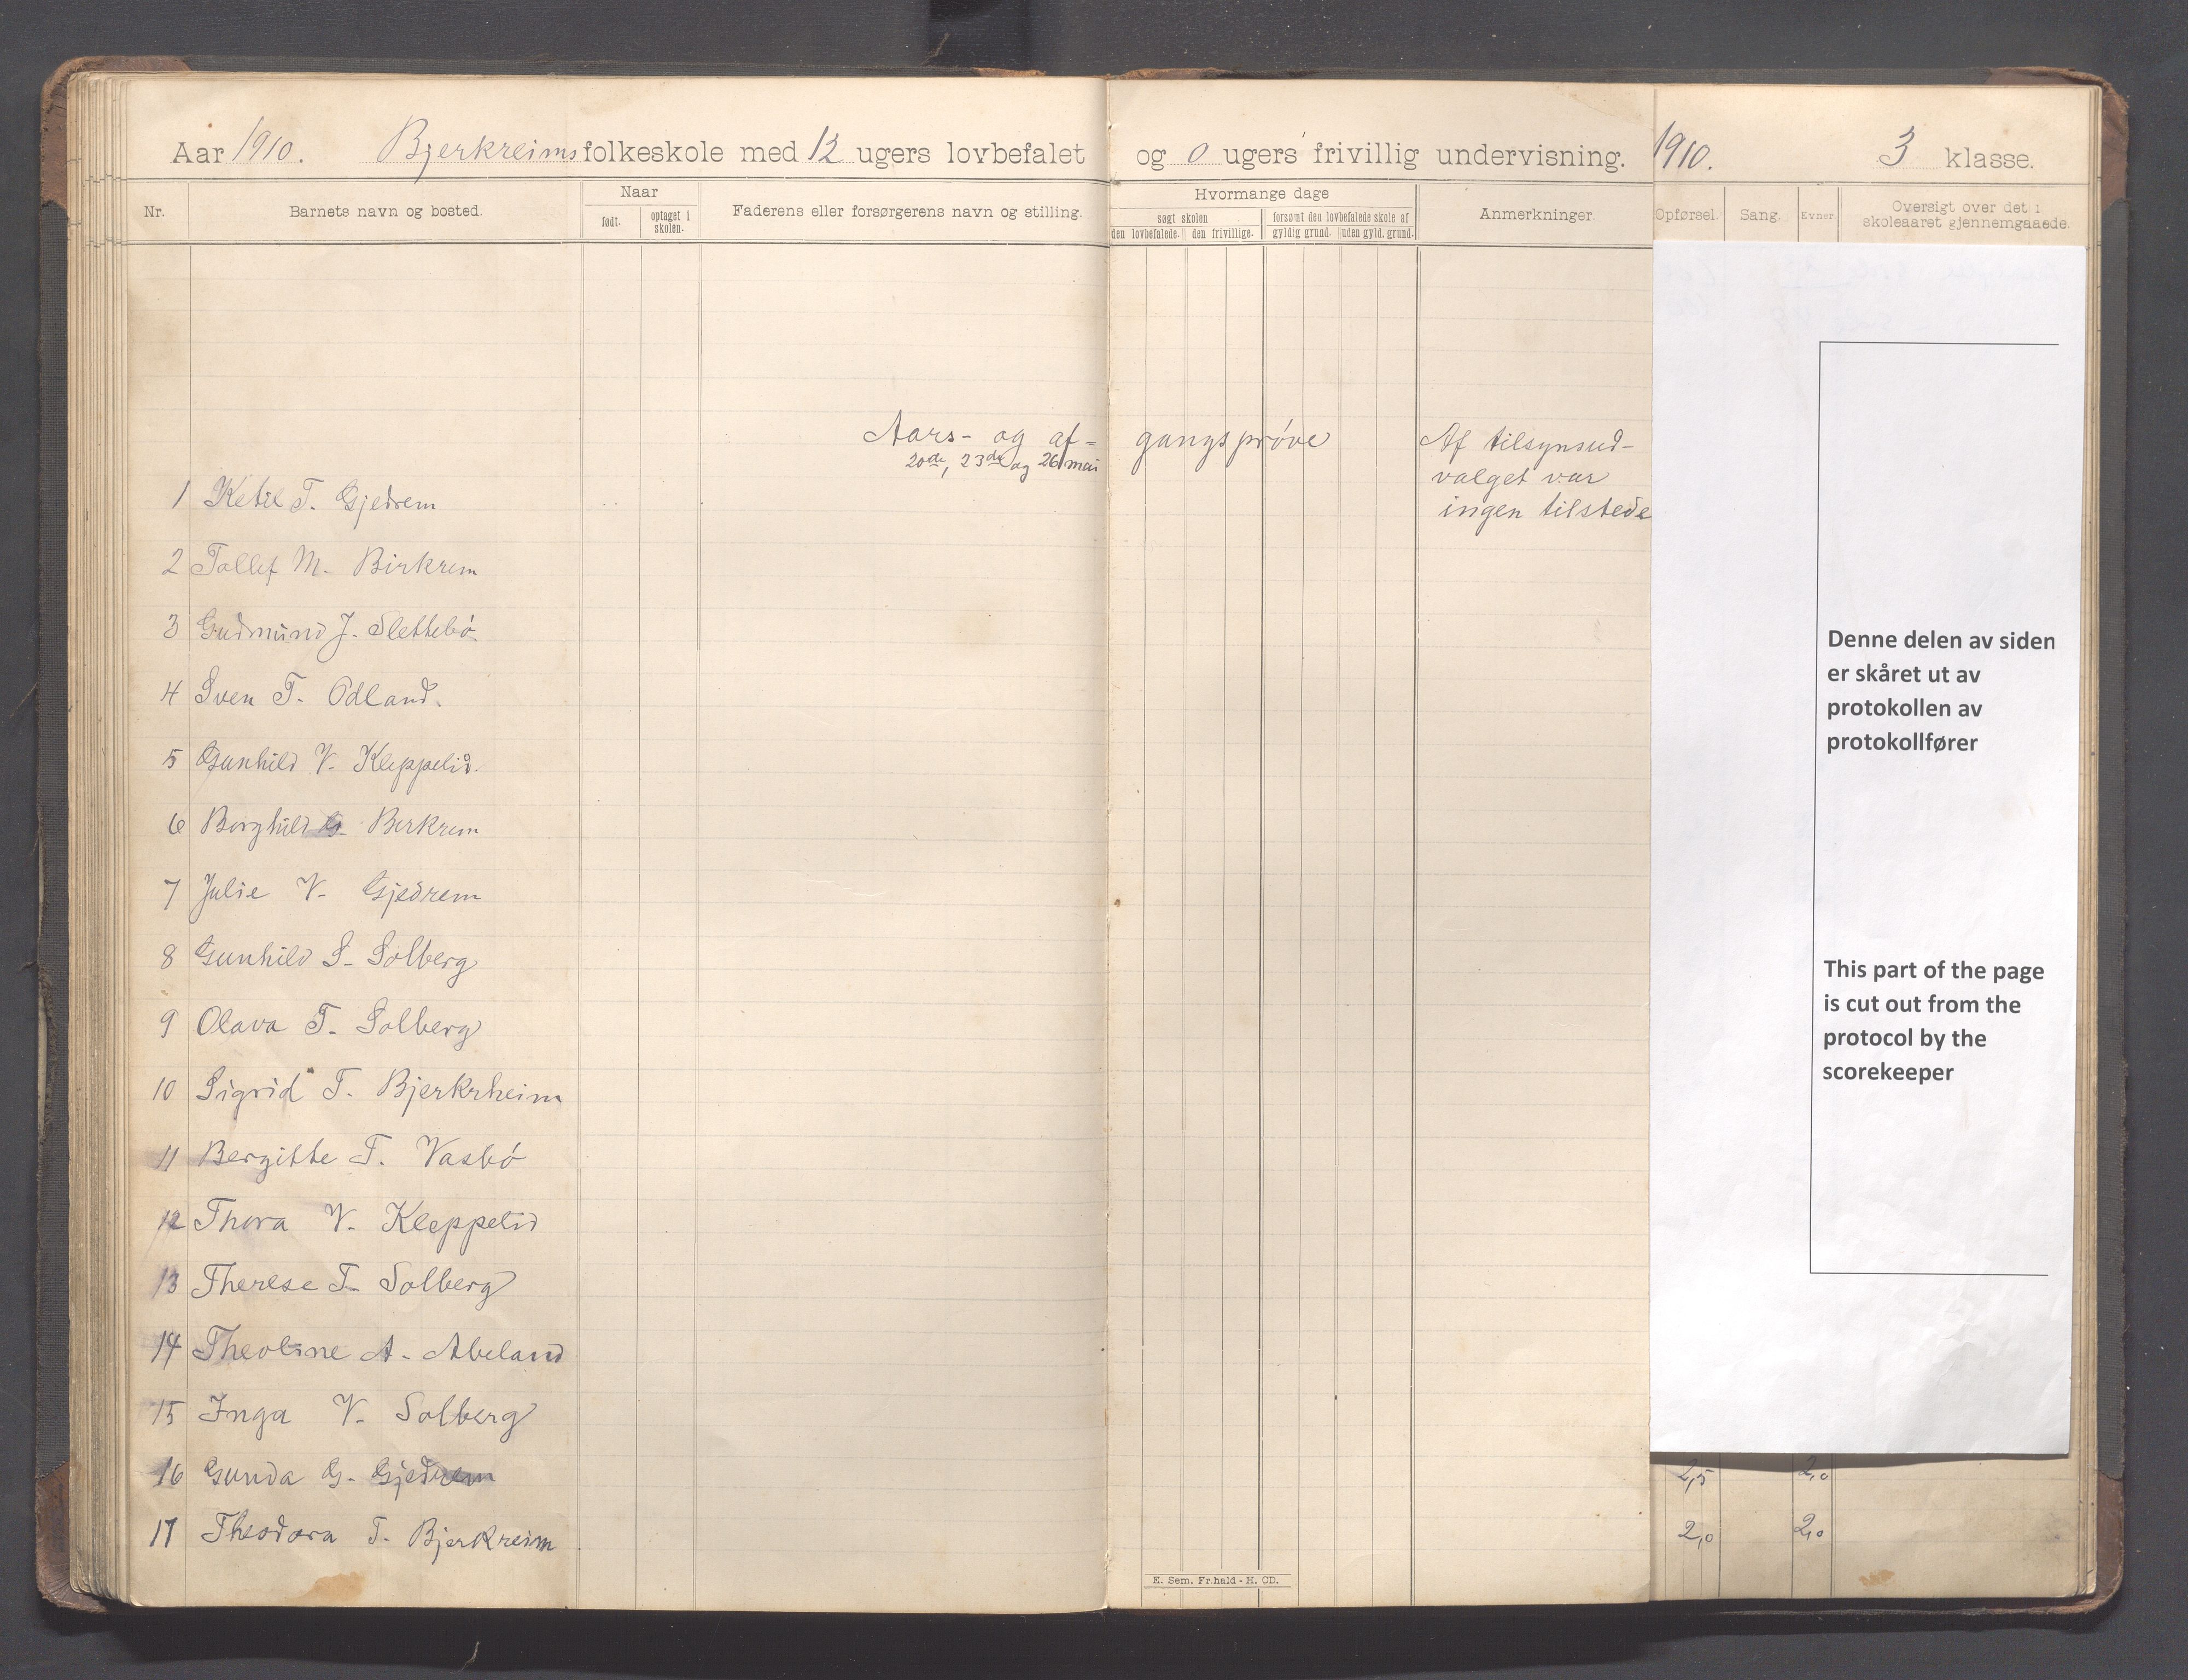 Aar 1910. Bjerkreims folkeskole med 12 ugers lovbefalet og 0 ugers frivillig undervisning. 1910. 3 klasse.
Nr. Barnets navn og bosted. Naar født. optaget i skolen. Faderens eller forsørgerens navn og stilling. Hvormange dage søgt skolen den lovbefalede. den frivillige. forsømt den lovbefalede skole af gyldig grund. uden gyld. grund. Anmerkninger. Opførsel. Sang. Evner. Oversigt over det i skoleaaret gjennemgaaede.
Aars- og af= gangsprøve
20de, 23de og 26 mai
Af tilsynsud-
valget var
ingen tilstede
1 Ketil T. Gjedrem
2 Tollef M. Birkrem
3 Gudmund J. Slettebø.
4 Sven T. Odland.
5 Gunhild V. Kleppelid.
6 Borghild G. Berkrem
7 Julie V. Gjedrem
8 Gunhild S. Solberg
9 Olava T. Solberg
10 Sigrid T. Bjerkrheim
11 Bergitte T. Vasbø
12 Thora V. Kleppelid
13 Therese T. Solberg
14 Theoline A. Abeland
15 Inga V. Solberg
16 Gunda G. Gjedrem 2,5 2,0
17 Theodora T. Bjerkreim 2,0 2,0
E. Sem, Fr.hald - H. CD.
Denne delen av siden
er skåret ut av
protokollen av
protokollfører
This part of the page
is cut out from the
protocol by the
scorekeeper